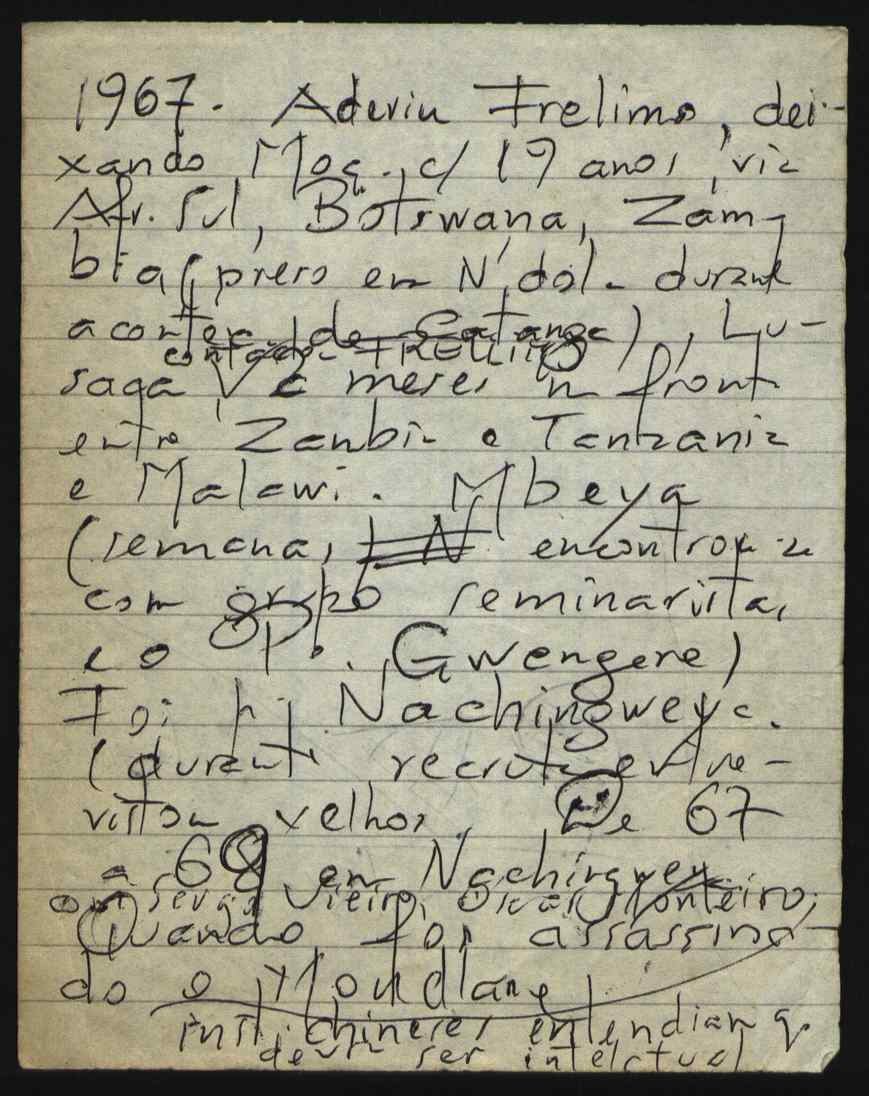 1967. Aderiu Frelimo, dei-
xando Moç., c/ 19 anos, via
Afr. Sul, Botswana, Zâm-
bia (preso em N'dola durante
acontec. de Catanga), Lu-
contado FRELIMO
saga, meses n front
entre Zambia e Tanzania
e Malawi. Mbeya
(semana, encontrou-se
com grupo seminaristas
e o P. Gwengere)
Foi p. Nachingweya.
(durante recruta entre-
vistou velhos. De 67
a 69 em Nachingwea
com Sergio Vieira, Oscar Monteiro,
Quando foi assassina-
do o Mondlane
inst. chineses entendiam q.
devia ser intelctual